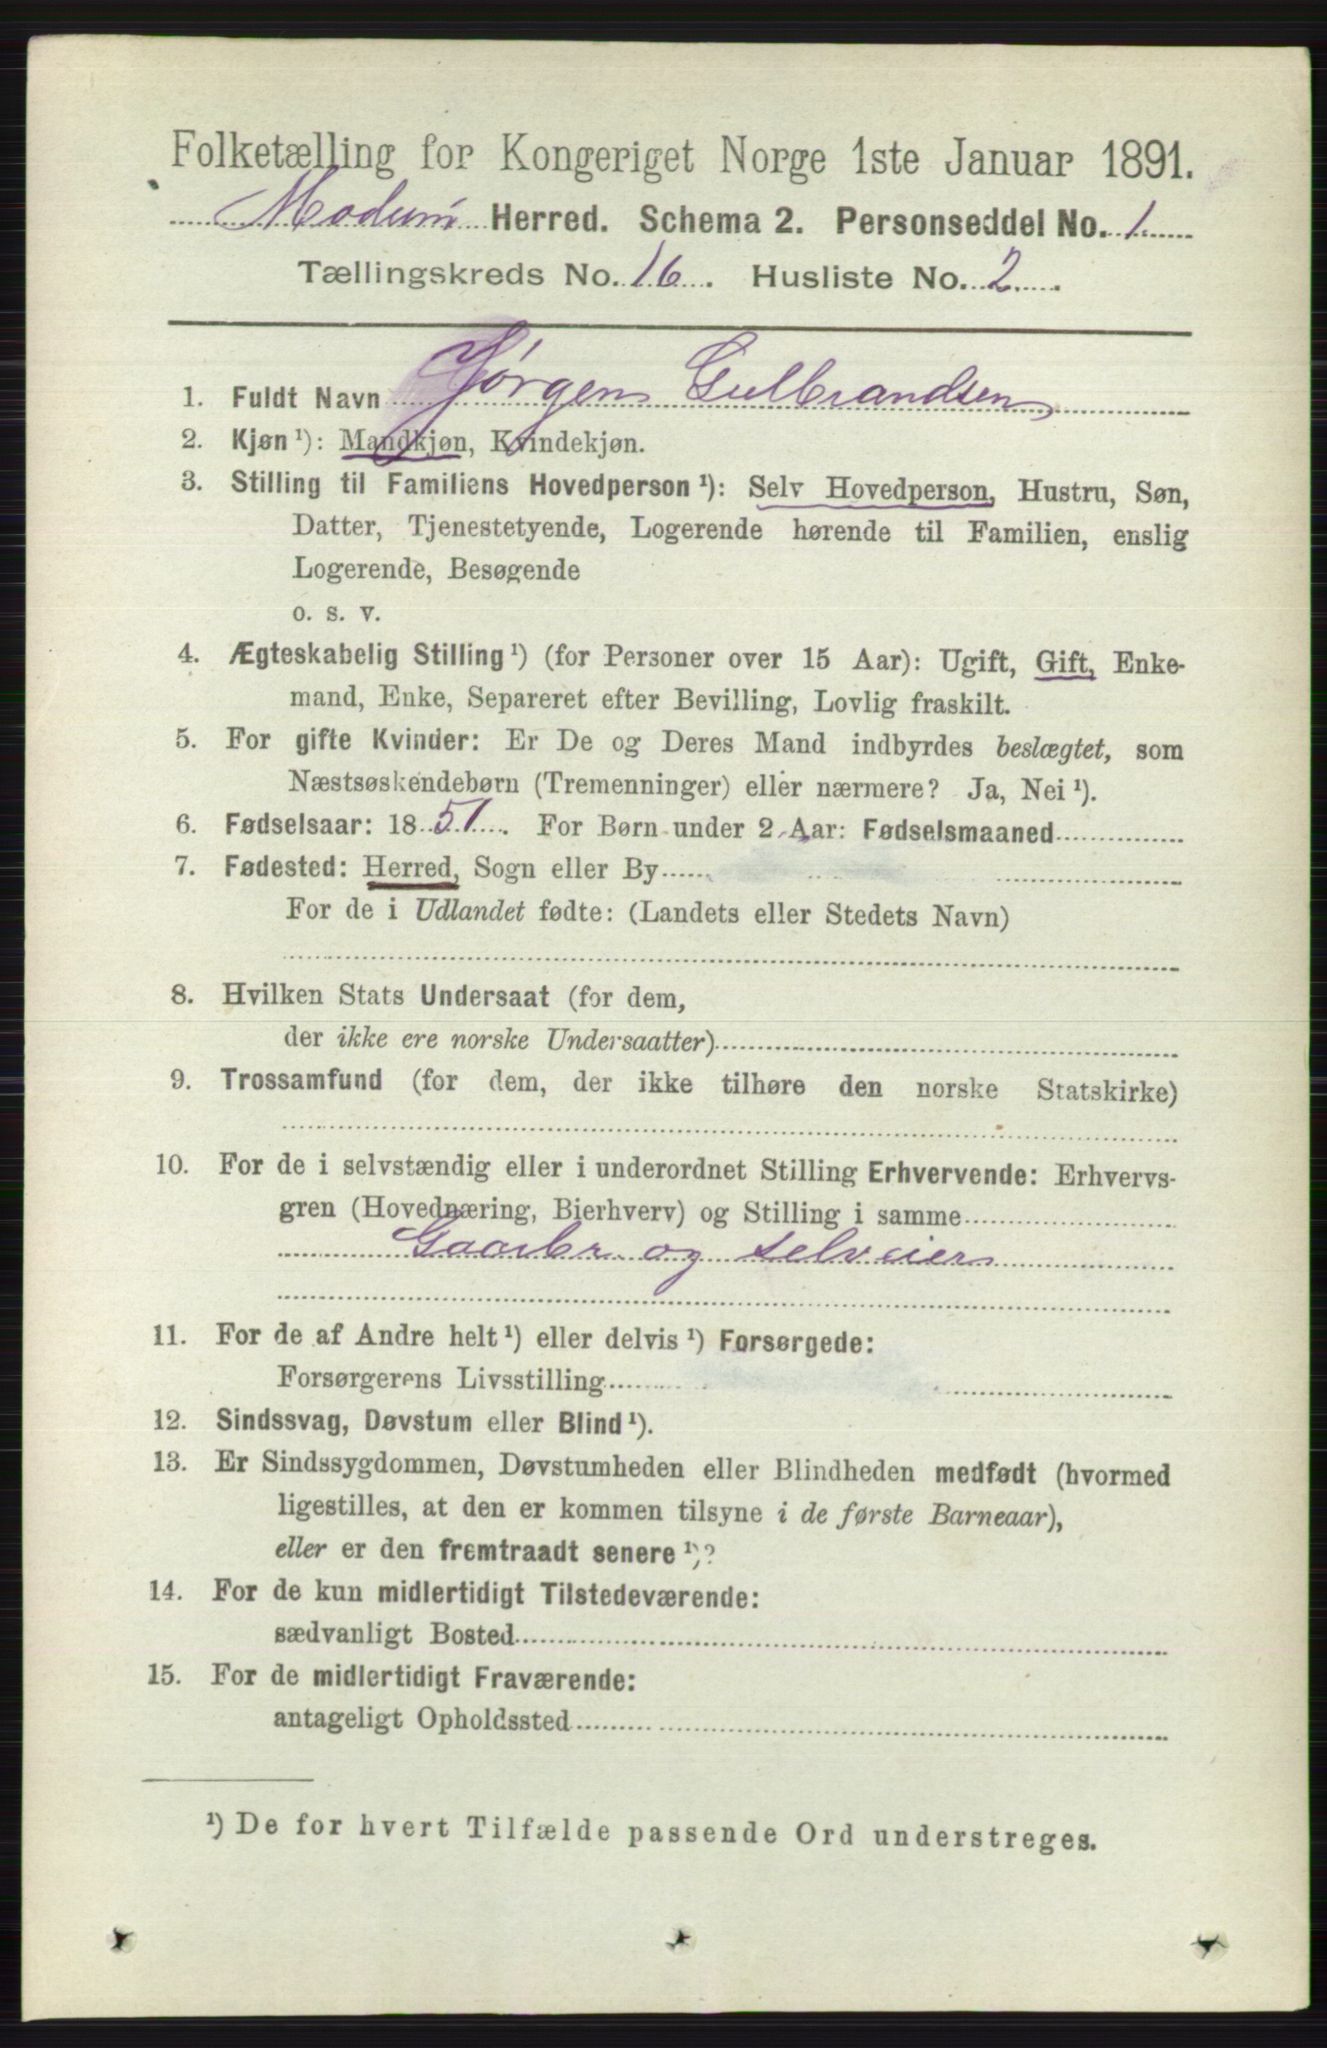 Folketælling for Kongeriget Norge 1ste Januar 1891.
Modum Herred. Schema 2. Personseddel No. 1
Tællingskreds No. 16. Husliste No. 2
1. Fuldt Navn Jørgen Gulbrandsen
2. Kjøn ¹): Mandkjøn, Kvindekjøn.
3. Stilling til Familiens Hovedperson ¹): Selv Hovedperson, Hustru, Søn,
Datter, Tjenestetyende, Logerende hørende til Familien, enslig
Logerende, Besøgende
o. s. v.
4. Ægteskabelig Stilling ¹) (for Personer over 15 Aar): Ugift, Gift, Enke-
mand, Enke, Separeret efter Bevilling, Lovlig fraskilt.
5. For gifte Kvinder: Er De og Deres Mand indbyrdes beslægtet, som
Næstsøskendebørn (Tremenninger) eller nærmere? Ja, Nei ¹).
6. Fødselsaar: 1851. For Børn under 2 Aar: Fødselsmaaned
7. Fødested: Herred, Sogn eller By
For de i Udlandet fødte: (Landets eller Stedets Navn)
8. Hvilken Stats Undersaat (for dem,
der ikke ere norske Undersaatter)
9. Trossamfund (for dem, der ikke tilhøre den norske Statskirke)
10. For de i selvstændig eller i underordnet Stilling Erhvervende: Erhvervs-
gren (Hovednæring, Bierhverv) og Stilling i samme
Gaarbr og selveier
11. For de af Andre helt ¹) eller delvis ¹) Forsørgede:
Forsørgerens Livsstilling
12. Sindssvag, Døvstum eller Blind ¹).
13. Er Sindssygdommen, Døvstumheden eller Blindheden medfødt (hvormed
ligestilles, at den er kommen tilsyne i de første Barneaar),
eller er den fremtraadt senere ¹)?
14. For de kun midlertidigt Tilstedeværende:
sædvanligt Bosted
15. For de midlertidigt Fraværende:
antageligt Opholdssted
¹) De for hvert Tilfælde passende Ord understreges.